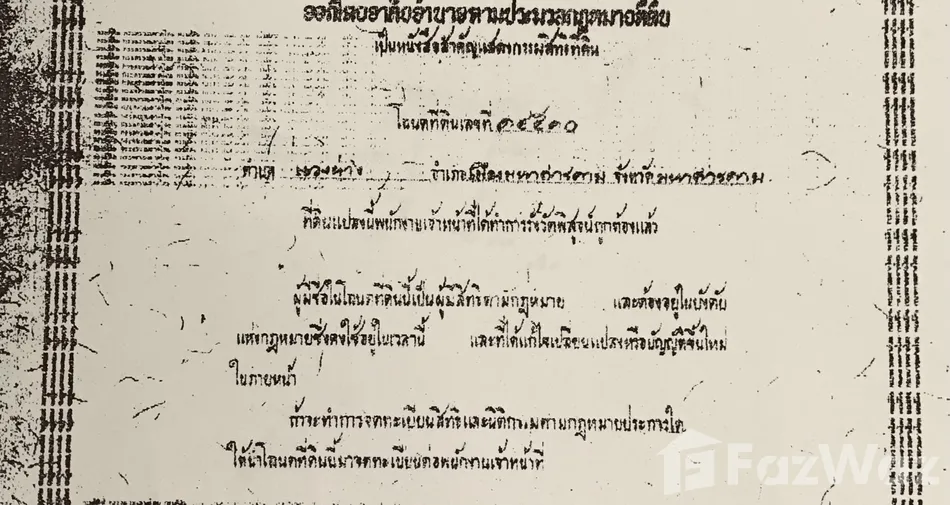 ออกโดยอาศัยอำนาจตามประมวลกฎหมายที่ดิน
เป็นหนังสือสำคัญแสดงกรรมสิทธิที่ดิน
โฉนดที่ดินเลขที่
ตำบล แวงน่าง อำเภอเมืองมหาสารคาม จังหวัดมหาสารคาม
ที่ดินแปลงนี้พนักงานเจ้าหน้าที่ได้ทำการรังวัดพิสูจน์ถูกต้องแล้ว
ผู้มีชื่อในโฉนดที่ดินนี้เป็นผู้มีสิทธิตามกฎหมาย และต้องอยู่ในบังคับ
แห่งกฎหมายซึ่งคงใช้อยู่ในเวลานี้ และที่ได้แก้ไขเปลี่ยนแปลงหรือบัญญัติขึ้นใหม่
ในภายหน้า
ถ้าจะทำการจดทะเบียนสิทธิและนิติกรรมตามกฎหมายประการใด
ให้นำโฉนดที่ดินนี้มาจดทะเบียนต่อพนักงานเจ้าหน้าที่
FazWaz